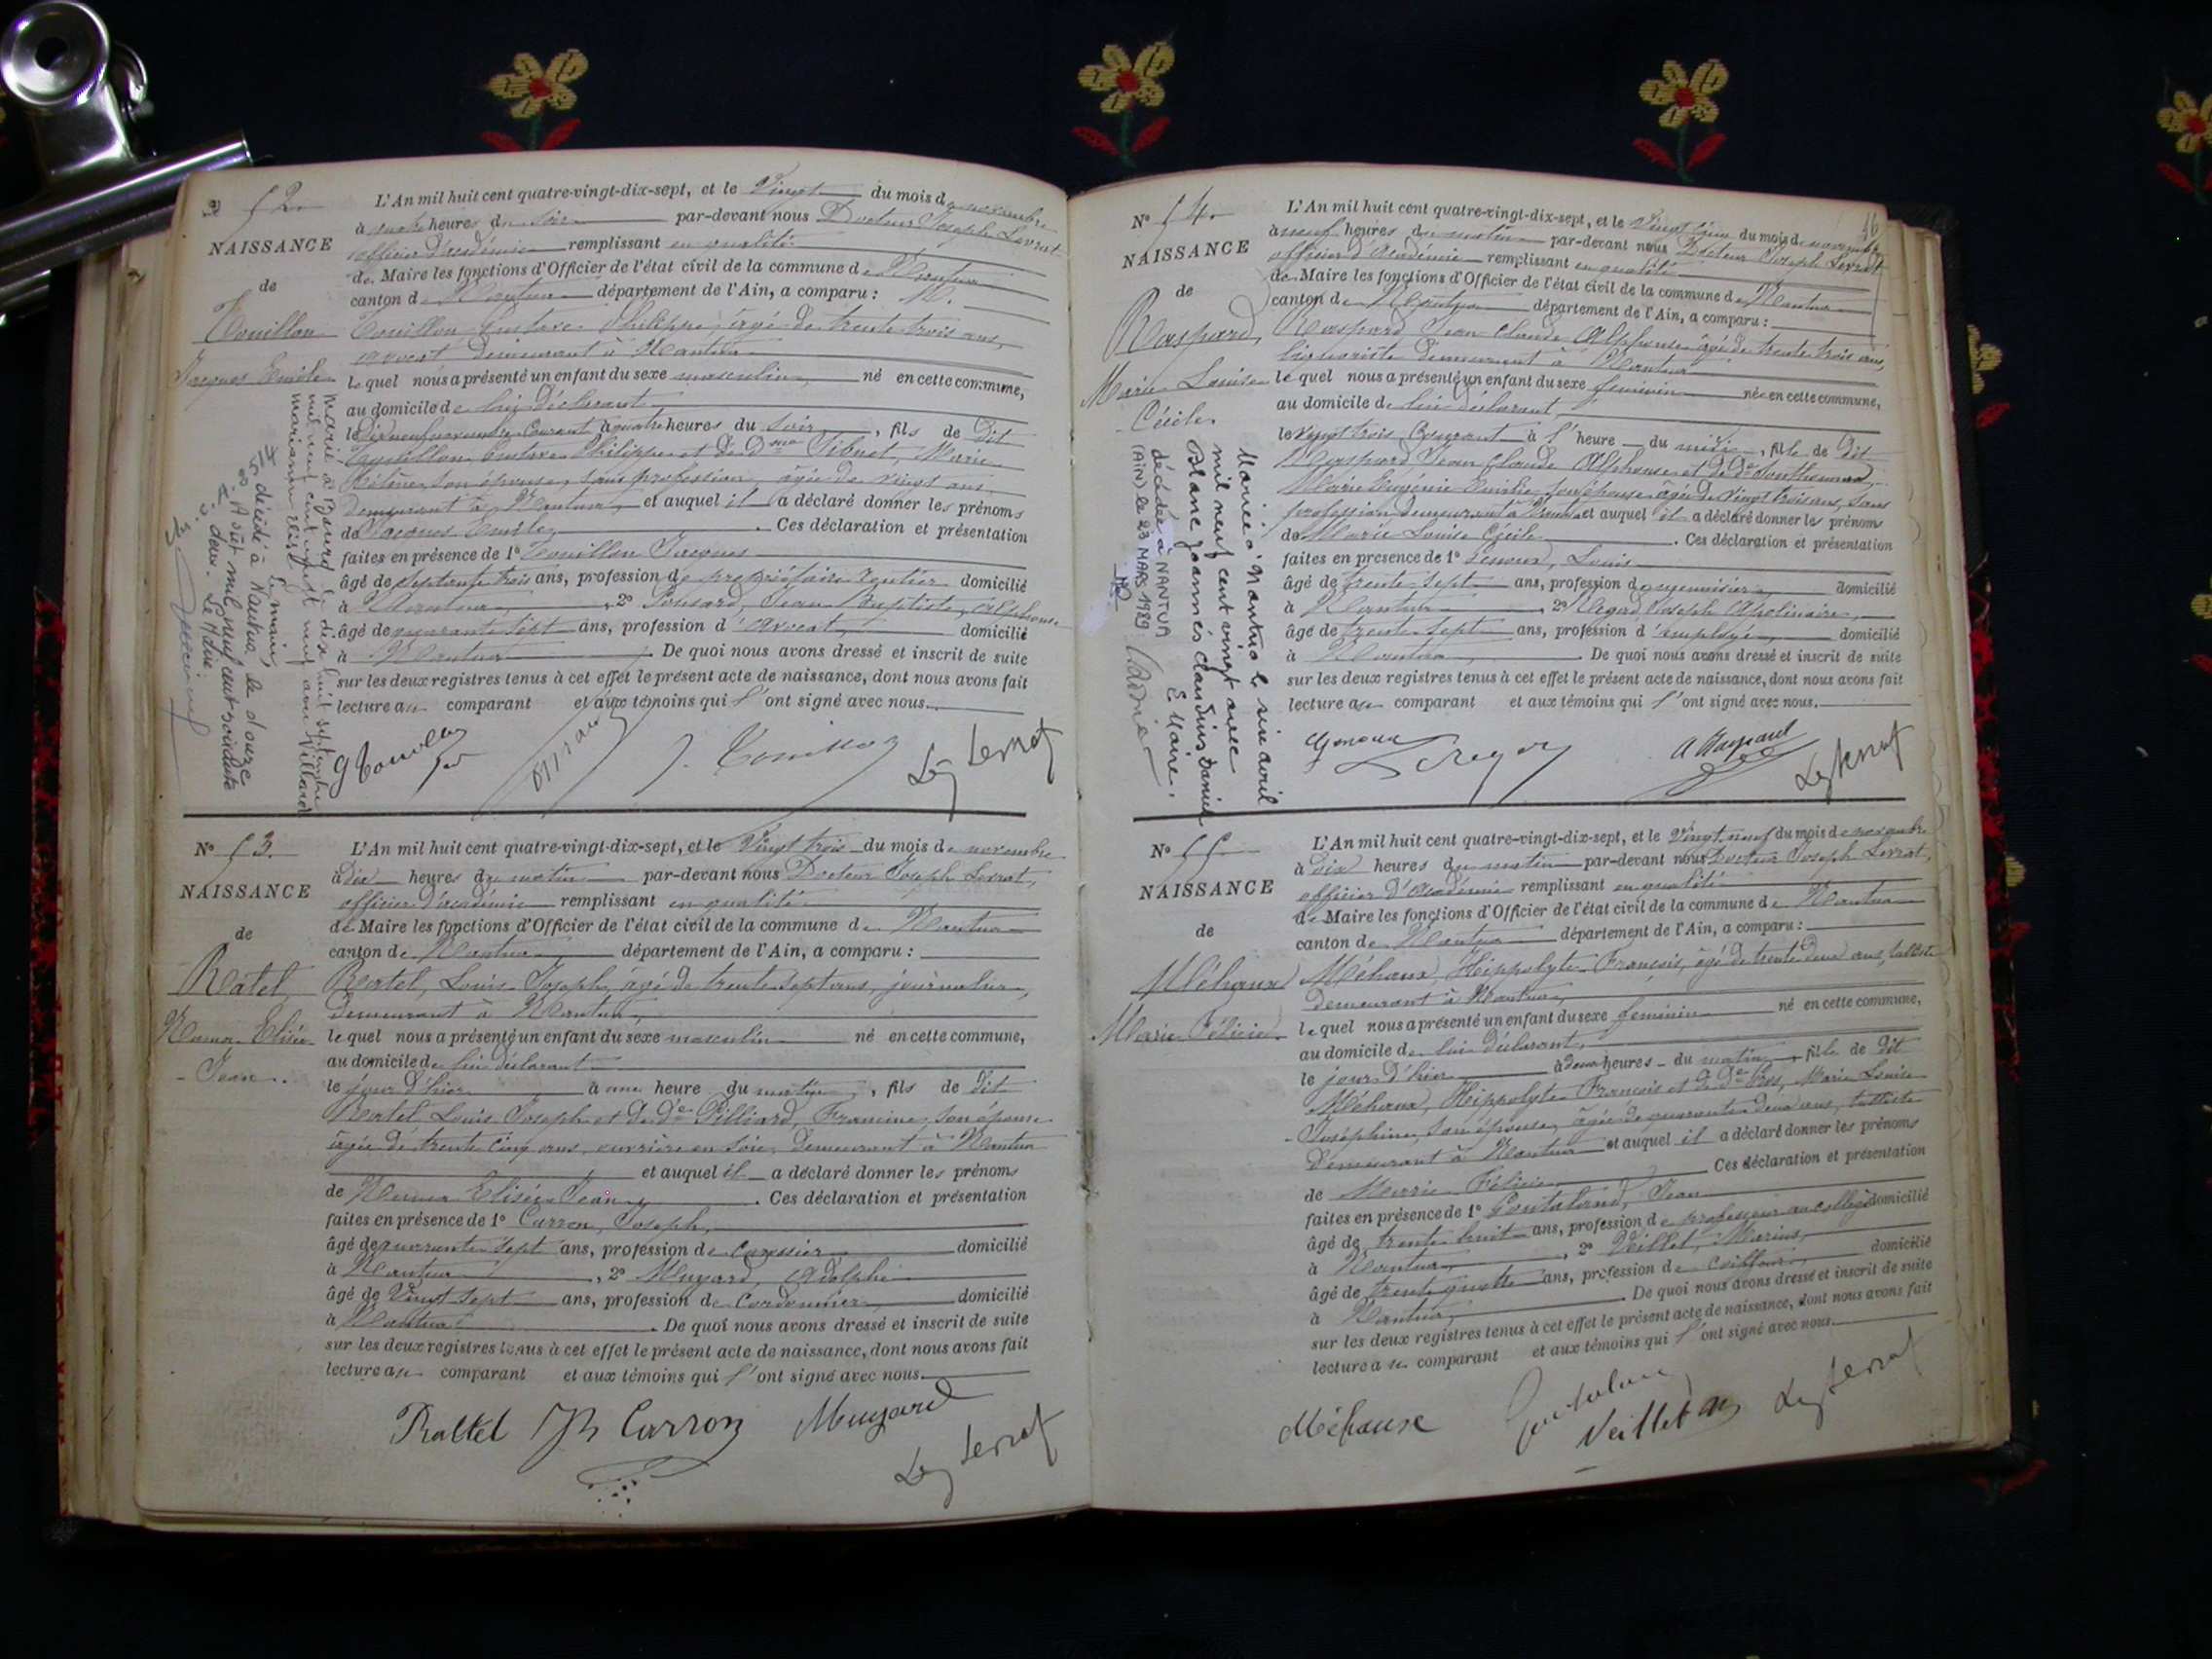 N° 52.
NAISSANCE
de
Touillon
Jacques Emile
L'An mil huit cent quatre-vingt-dix-sept, et le Vingt du mois de novembre
à heures du soir par-devant nous Docteur Joseph Levrat
officier d'académie remplissant en qualité
de Maire les fonctions d'Officier de l'état civil de la commune de Nantua
canton de Nantua département de l'Ain, a comparu : M.
Touillon Gustave Philippe, âgé de trente trois ans,
avocat demeurant à Nantua
lequel nous a présenté un enfant du sexe masculin né en cette commune,
au domicile de lui déclarant
le dix neuf novembre courant à quatre heures du soir, fils de dit
Touillon Gustave Philippe et de Dme Tibut, Marie
son épouse, sans profession, âgée de vingt ans
demeurant à Nantua et auquel il a déclaré donner les prénoms
de Jacques Emile. Ces déclaration et présentation
faites en présence de 1° Touillon Jacques
âgé de septante trois ans, profession de propriétaire rentier domicilié
à Nantua, 2° Jean Baptiste, Alphonse
âgé de quarante sept ans, profession d'avocat domicilié
à Nantua. De quoi nous avons dressé et inscrit de suite
sur les deux registres tenus à cet effet le présent acte de naissance, dont nous avons fait
lecture au comparant et aux témoins qui l'ont signé avec nous.
Marié à le dix huit septembre
mil neuf cent vingt neuf avec Villard
Marianne
décédé à Nantua, le douze
Août mil neuf cent soixante
deux. Le Maire
G Touillon J. Touillon Dr J Levrat
N° 53.
NAISSANCE
de
Ratel
Numa Elisée
Jean.
L'An mil huit cent quatre-vingt-dix-sept, et le Vingt trois du mois de novembre
à dix heures du matin par-devant nous Docteur Joseph Levrat,
officier d'académie remplissant en qualité
de Maire les fonctions d'Officier de l'état civil de la commune de Nantua
canton de Nantua, département de l'Ain, a comparu :
Ratel, Louis Joseph, âgé de trente sept ans, journalier,
demeurant à Nantua,
lequel nous a présenté un enfant du sexe masculin né en cette commune,
au domicile de lui déclarant
le jour d'hier à une heure du matin, fils de dit
Ratel, Louis Joseph et de De Billiard, Francine, son épouse
âgée de trente cinq ans, ouvrière en soie, demeurant à Nantua
et auquel il a déclaré donner les prénoms
de Numa Elisée Jean. Ces déclaration et présentation
faites en présence de 1° Carron, Joseph,
âgé de quarante sept ans, profession de domicilié
à Nantua, 2° Mugard, Adolphe
âgé de Vingt sept ans, profession de cordonnier domicilié
à Nantua. De quoi nous avons dressé et inscrit de suite
sur les deux registres tenus à cet effet le présent acte de naissance, dont nous avons fait
lecture au comparant et aux témoins qui l'ont signé avec nous.
Rattel Jh Carron Mugard
Dr J Levrat
46
N° 54.
NAISSANCE
de
Raspard
Marie Louise
Cécile
L'An mil huit cent quatre-vingt-dix-sept, et le du mois de novembre
à neuf heures du matin par-devant nous Docteur Joseph Levrat
officier d'Académie remplissant en qualité
de Maire les fonctions d'Officier de l'état civil de la commune de Nantua
canton de Nantua département de l'Ain, a comparu :
Raspard Jean Claude Alphonse âgé de trente trois ans,
liquoriste demeurant à Nantua
lequel nous a présenté un enfant du sexe féminin née en cette commune,
au domicile de lui déclarant,
le vingt trois courant à l'heure du midi, fille de dit
Raspard Jean Claude Alphonse et de De
Marie Eugénie son épouse âgée de vingt trois ans, sans
profession demeurant à Nantua et auquel il a déclaré donner les prénoms
de Marie Louise Cécile. Ces déclaration et présentation
faites en présence de 1° Genoux, Louis
âgé de trente sept ans, profession de menuisier domicilié
à Nantua, 2° Regard Joseph Apolinaire,
âgé de trente sept ans, profession d'employé domicilié
à Nantua. De quoi nous avons dressé et inscrit de suite
sur les deux registres tenus à cet effet le présent acte de naissance, dont nous avons fait
lecture au comparant et aux témoins qui l'ont signé avec nous.
Mariée à Nantua le six avril
mil neuf cent vingt avec
Blanc Joannès Claudius Daniel
Le Maire :
décédée à NANTUA
(Ain) le 23 MARS 1989
Genoux A Raspard
Dr J Levrat
N° 55.
NAISSANCE
de
Méhaux
Marie Félicie.
L'An mil huit cent quatre-vingt-dix-sept, et le Vingt neuf du mois de novembre
à dix heures du matin par-devant nous Docteur Joseph Levrat,
officier d'Académie remplissant en qualité
de Maire les fonctions d'Officier de l'état civil de la commune de Nantua
canton de Nantua département de l'Ain, a comparu :
Méhaux, Hippolyte François, âgé de trente deux ans,
demeurant à Nantua,
lequel nous a présenté un enfant du sexe féminin né en cette commune,
au domicile de lui déclarant,
le jour d'hier à deux heures du matin, fille de dit
Méhaux, Hippolyte François et de De Marie Louise
Joséphine, son épouse, âgée de quarante deux ans,
demeurant à Nantua et auquel il a déclaré donner les prénoms
de Marie Félicie Ces déclaration et présentation
faites en présence de 1° Jean
âgé de trente huit ans, profession de professeur au collège domicilié
à Nantua, 2° Veillet, Marius,
âgé de trente quatre ans, profession de coiffeur domicilié
à Nantua. De quoi nous avons dressé et inscrit de suite
sur les deux registres tenus à cet effet le présent acte de naissance, dont nous avons fait
lecture au comparant et aux témoins qui l'ont signé avec nous.
Méhaux Veillet M Dr J Levrat